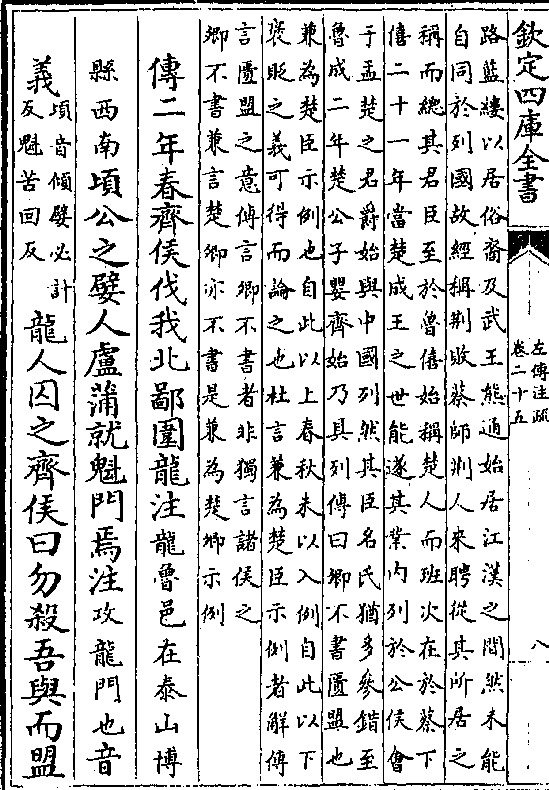 欽定四庫全書
左傳注疏
卷二十五
八
路藍縷以居俗裔及武王熊通始居江漢之間然未能
自同於列國故經稱荆敗蔡師荆人來聘從其所居之
稱而總其君臣至於魯僖始稱楚人而班次在於蔡下
僖二十一年當楚成王之世能遂其業内列於公侯會
于盂楚之君爵始與中國列然其臣名氏猶多參錯至
魯成二年楚公子嬰齊始乃具列傳曰卿不書匱盟也
兼為楚臣示例也自此以上春秋未以入例自此以下
褒貶之義可得而論之也杜言兼為楚臣示例者解傳
言匱盟之意傳言卿不書者非獨言諸侯之
卿不書兼言楚卿亦不書是兼為楚卿示例
傳二年春齊侯伐我北鄙圍龍注龍魯邑在泰山博
縣西南頃公之嬖人盧蒲就魁門焉注攻龍門也音
義頃音傾嬖必計
反魁苦回反
龍人囚之齊侯曰勿殺吾與而盟